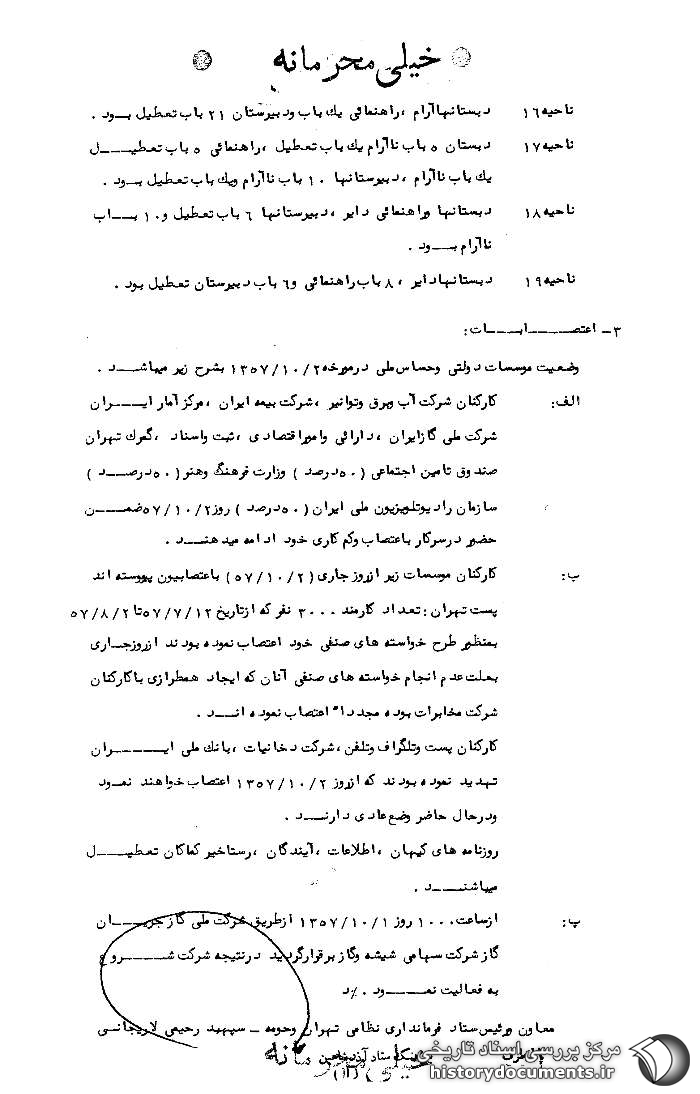 خیلی محرمانه
ناحیه ۱۶ دبستانها آرام ، راهنمائی یك باب ودبیرستان ۲۱ باب تعطیل بود .
ناحیه ۱۷ دبستان ۵ باب ناآرام یك باب تعطیل ، راهنمائی ۵ باب تعطیل
یك باب ناآرام ، دبیرستانها ۱۰ باب ناآرام ویك باب تعطیل بود .
ناحیه ۱۸ دبستانها وراهنمائی دایر ، دبیرستانها ٦ باب تعطیل و ۱۰ باب
ناآرام بود .
ناحیه ۱۹ دبستانها دایر ، ۸ باب راهنمائی و ٦ باب دبیرستان تعطیل بود .
۳ـ اعتصابات :
وضعیت موسسات دولتی وحساس ملی درمورخه ۱۳۵۷/۱۰/۲ بشرح زیر میباشد .
الف : کارکنان شرکت آب وبرق وتوانیر ، شرکت بیمه ایران ، مرکز آمار ایران
شرکت ملی گاز ایران ، دارائی وامور اقتصادی ، ثبت واسناد ، گمرك تهران
صندوق تامین اجتماعی ( ۵۰ درصد ) وزارت فرهنگ وهنر ( ۵۰ درصد )
سازمان رادیو تلویزیون ملی ایران ( ۵۰ درصد ) روز ۵۷/۱۰/۲ ضمن
حضور درسرکار باعتصاب وکم کاری خود ادامه میدهند .
ب : کارکنان موسسات زیر ازروز جاری ( ۵۷/۱۰/۲ ) باعتصابیون پیوسته اند
پست تهران : تعداد کارمند ۳۰۰۰ نفر که ازتاریخ ۵۷/۷/۱۲ تا ۵۷/۸/۲
بمنظور طرح خواسته های صنفی خود اعتصاب نموده بودند ازروزجاری
بعلت عدم انجام خواسته های صنفی آنان که ایجاد همطرازی باکارکنان
شرکت مخابرات بوده مجدداً اعتصاب نموده اند .
کارکنان پست وتلگراف وتلفن ، شرکت دخانیات ، بانك ملی ایران
تهدید نموده بودند که ازروز ۱۳۵۷/۱۰/۲ اعتصاب خواهند نمود
ودرحال حاضر وضع عادی دارند .
روزنامه های کیهان ، اطلاعات ، آیندگان ، رستاخیز کماکان تعطیل
میباشند .
پ : ازساعت ۱۰۰۰ روز ۱۳۵۷/۱۰/۱ ازطریق شرکت ملی گاز جریان
گاز شرکت سهامی شیشه وگاز برقرارگردید درنتیجه شرکت شروع
به فعالیت نمود .
معاون ورئیس ستاد فرمانداری نظامی تهران وحومه ـ سپهبد رحیمی لاریجانی
مرکز بررسی اسناد تاریخی
historydocuments.ir